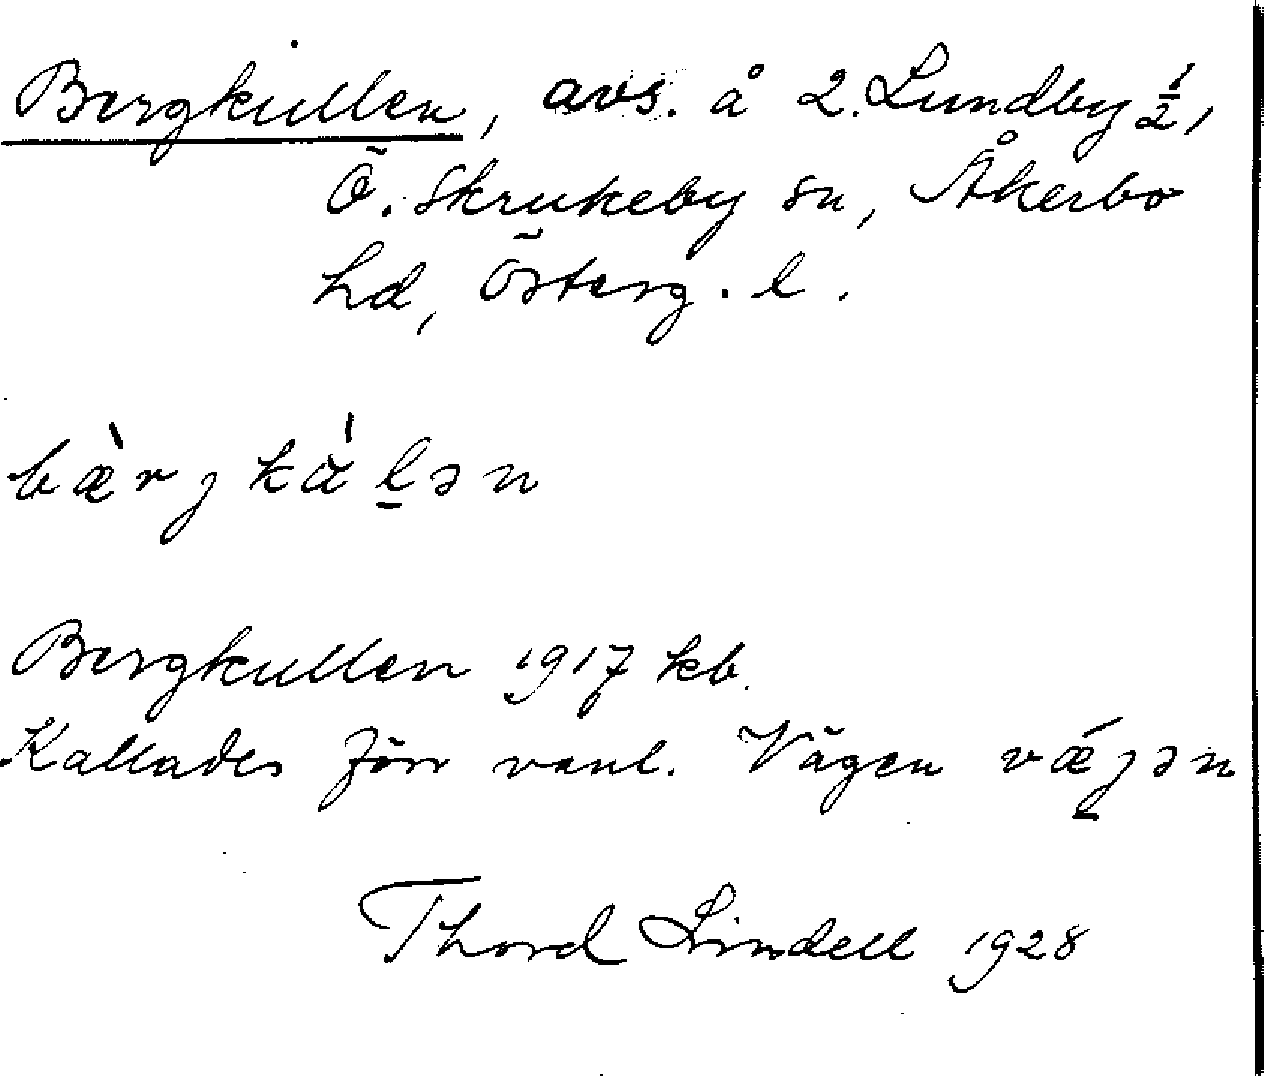 Bergkullen, avs. å 2. Lundby ½,
Ö. Skrukeby sn, Åkerbo
hd, Österg. l.
bæ̀rjkálən
Bergkullen 1917 kb.
Kallades förr vanl. Vägen vǽjən
Thord Lindell 1928